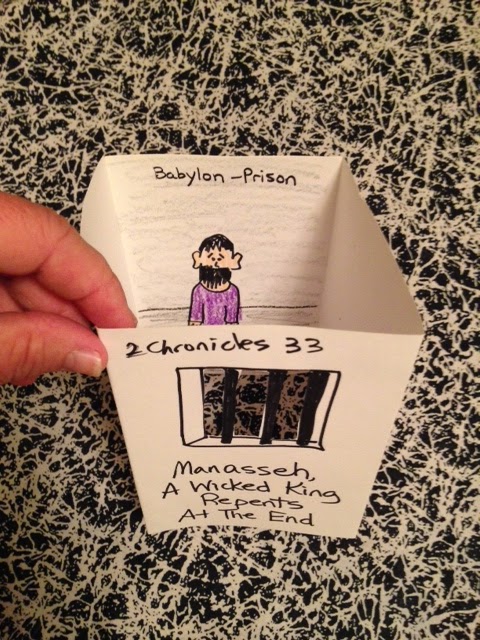 Babylon - Prison
2 Chronicles 33
Manasseh,
A Wicked King
Repents
At The End